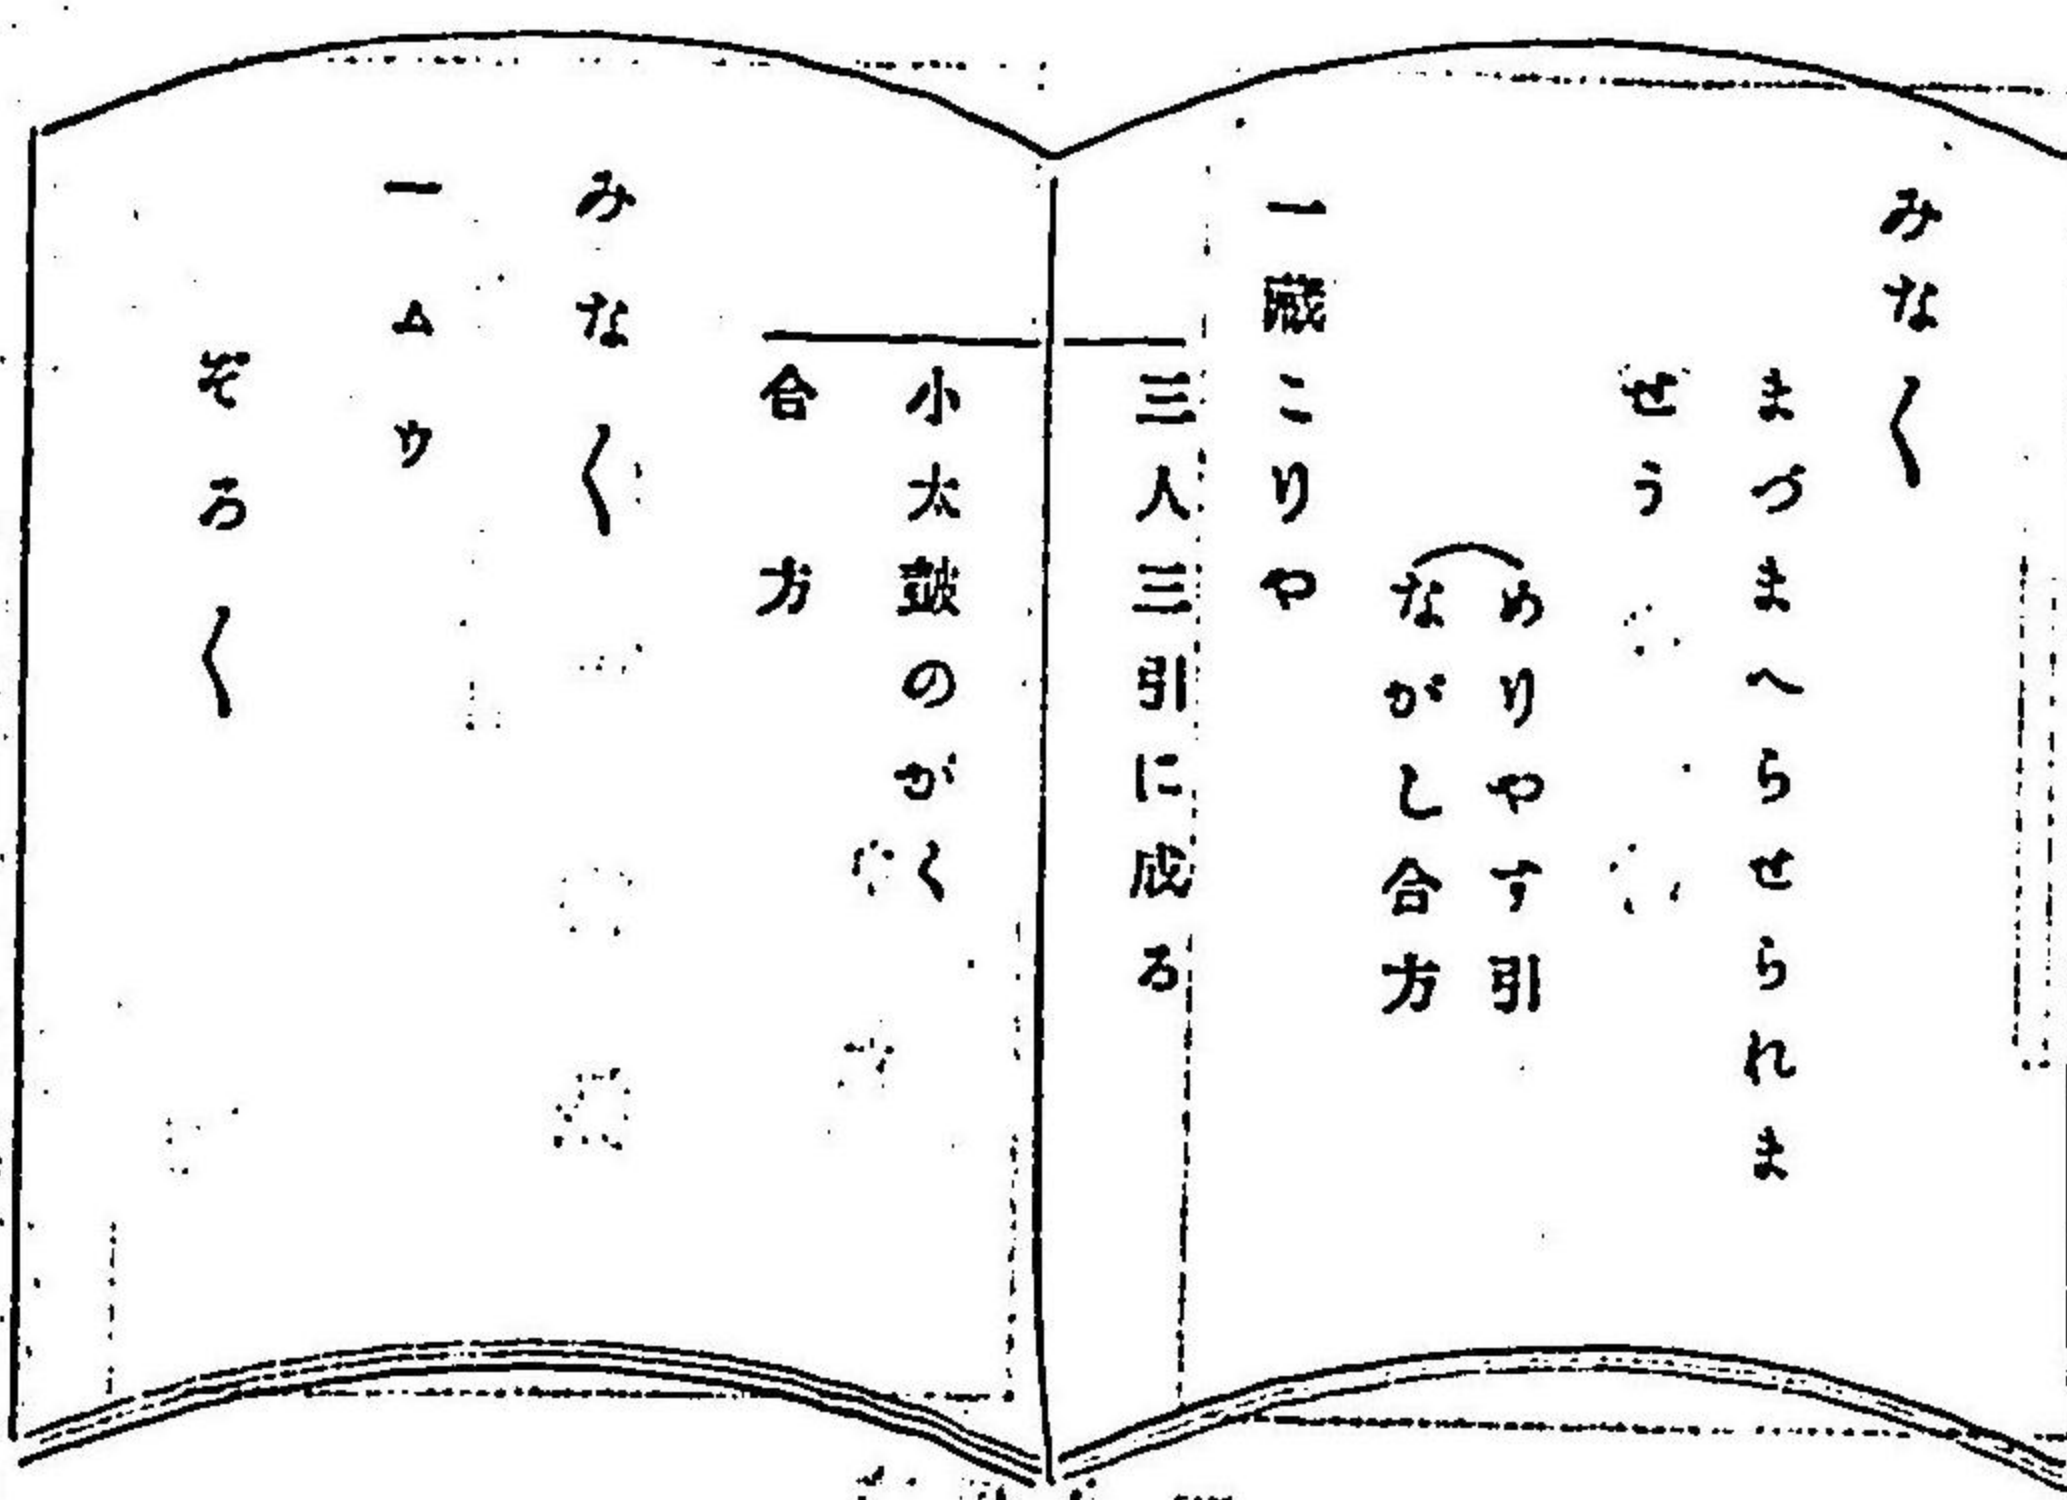 みな〱
まづまへらせられま
せう
めりやす引
ながし合方
一蔵こりや
三人三引に成る
小太鼓のがく
合方
みな〱
一ムウ
ぞろ〱